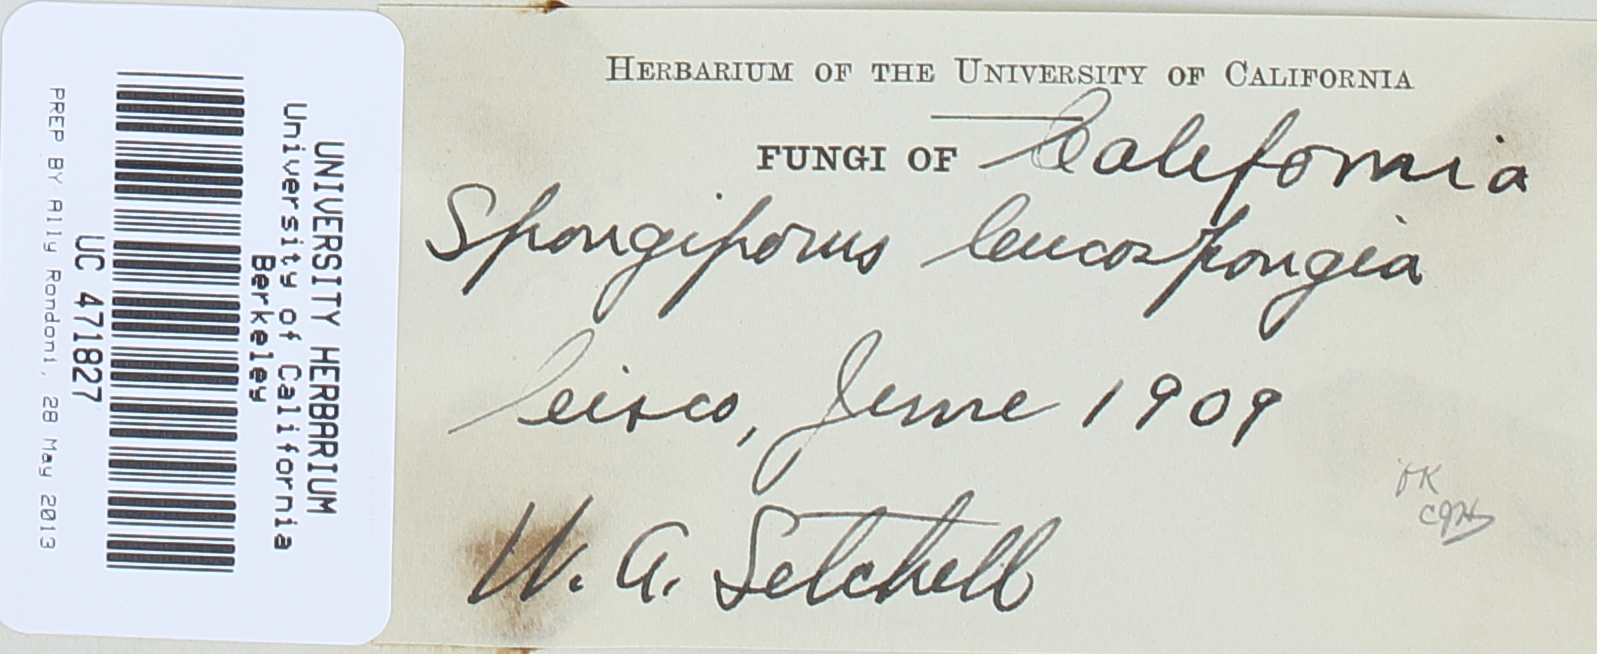 UNIVERSITY HERBARIUM
University of California
Berkeley
UC 471827
PREP BY Ally Rondoni, 28 May 2013
HERBARIUM OF THE UNIVERSITY OF CALIFORNIA
FUNGI OF California
Spongiporus leucospongia
Cisco, June 1909
W. A. Setchell
OK